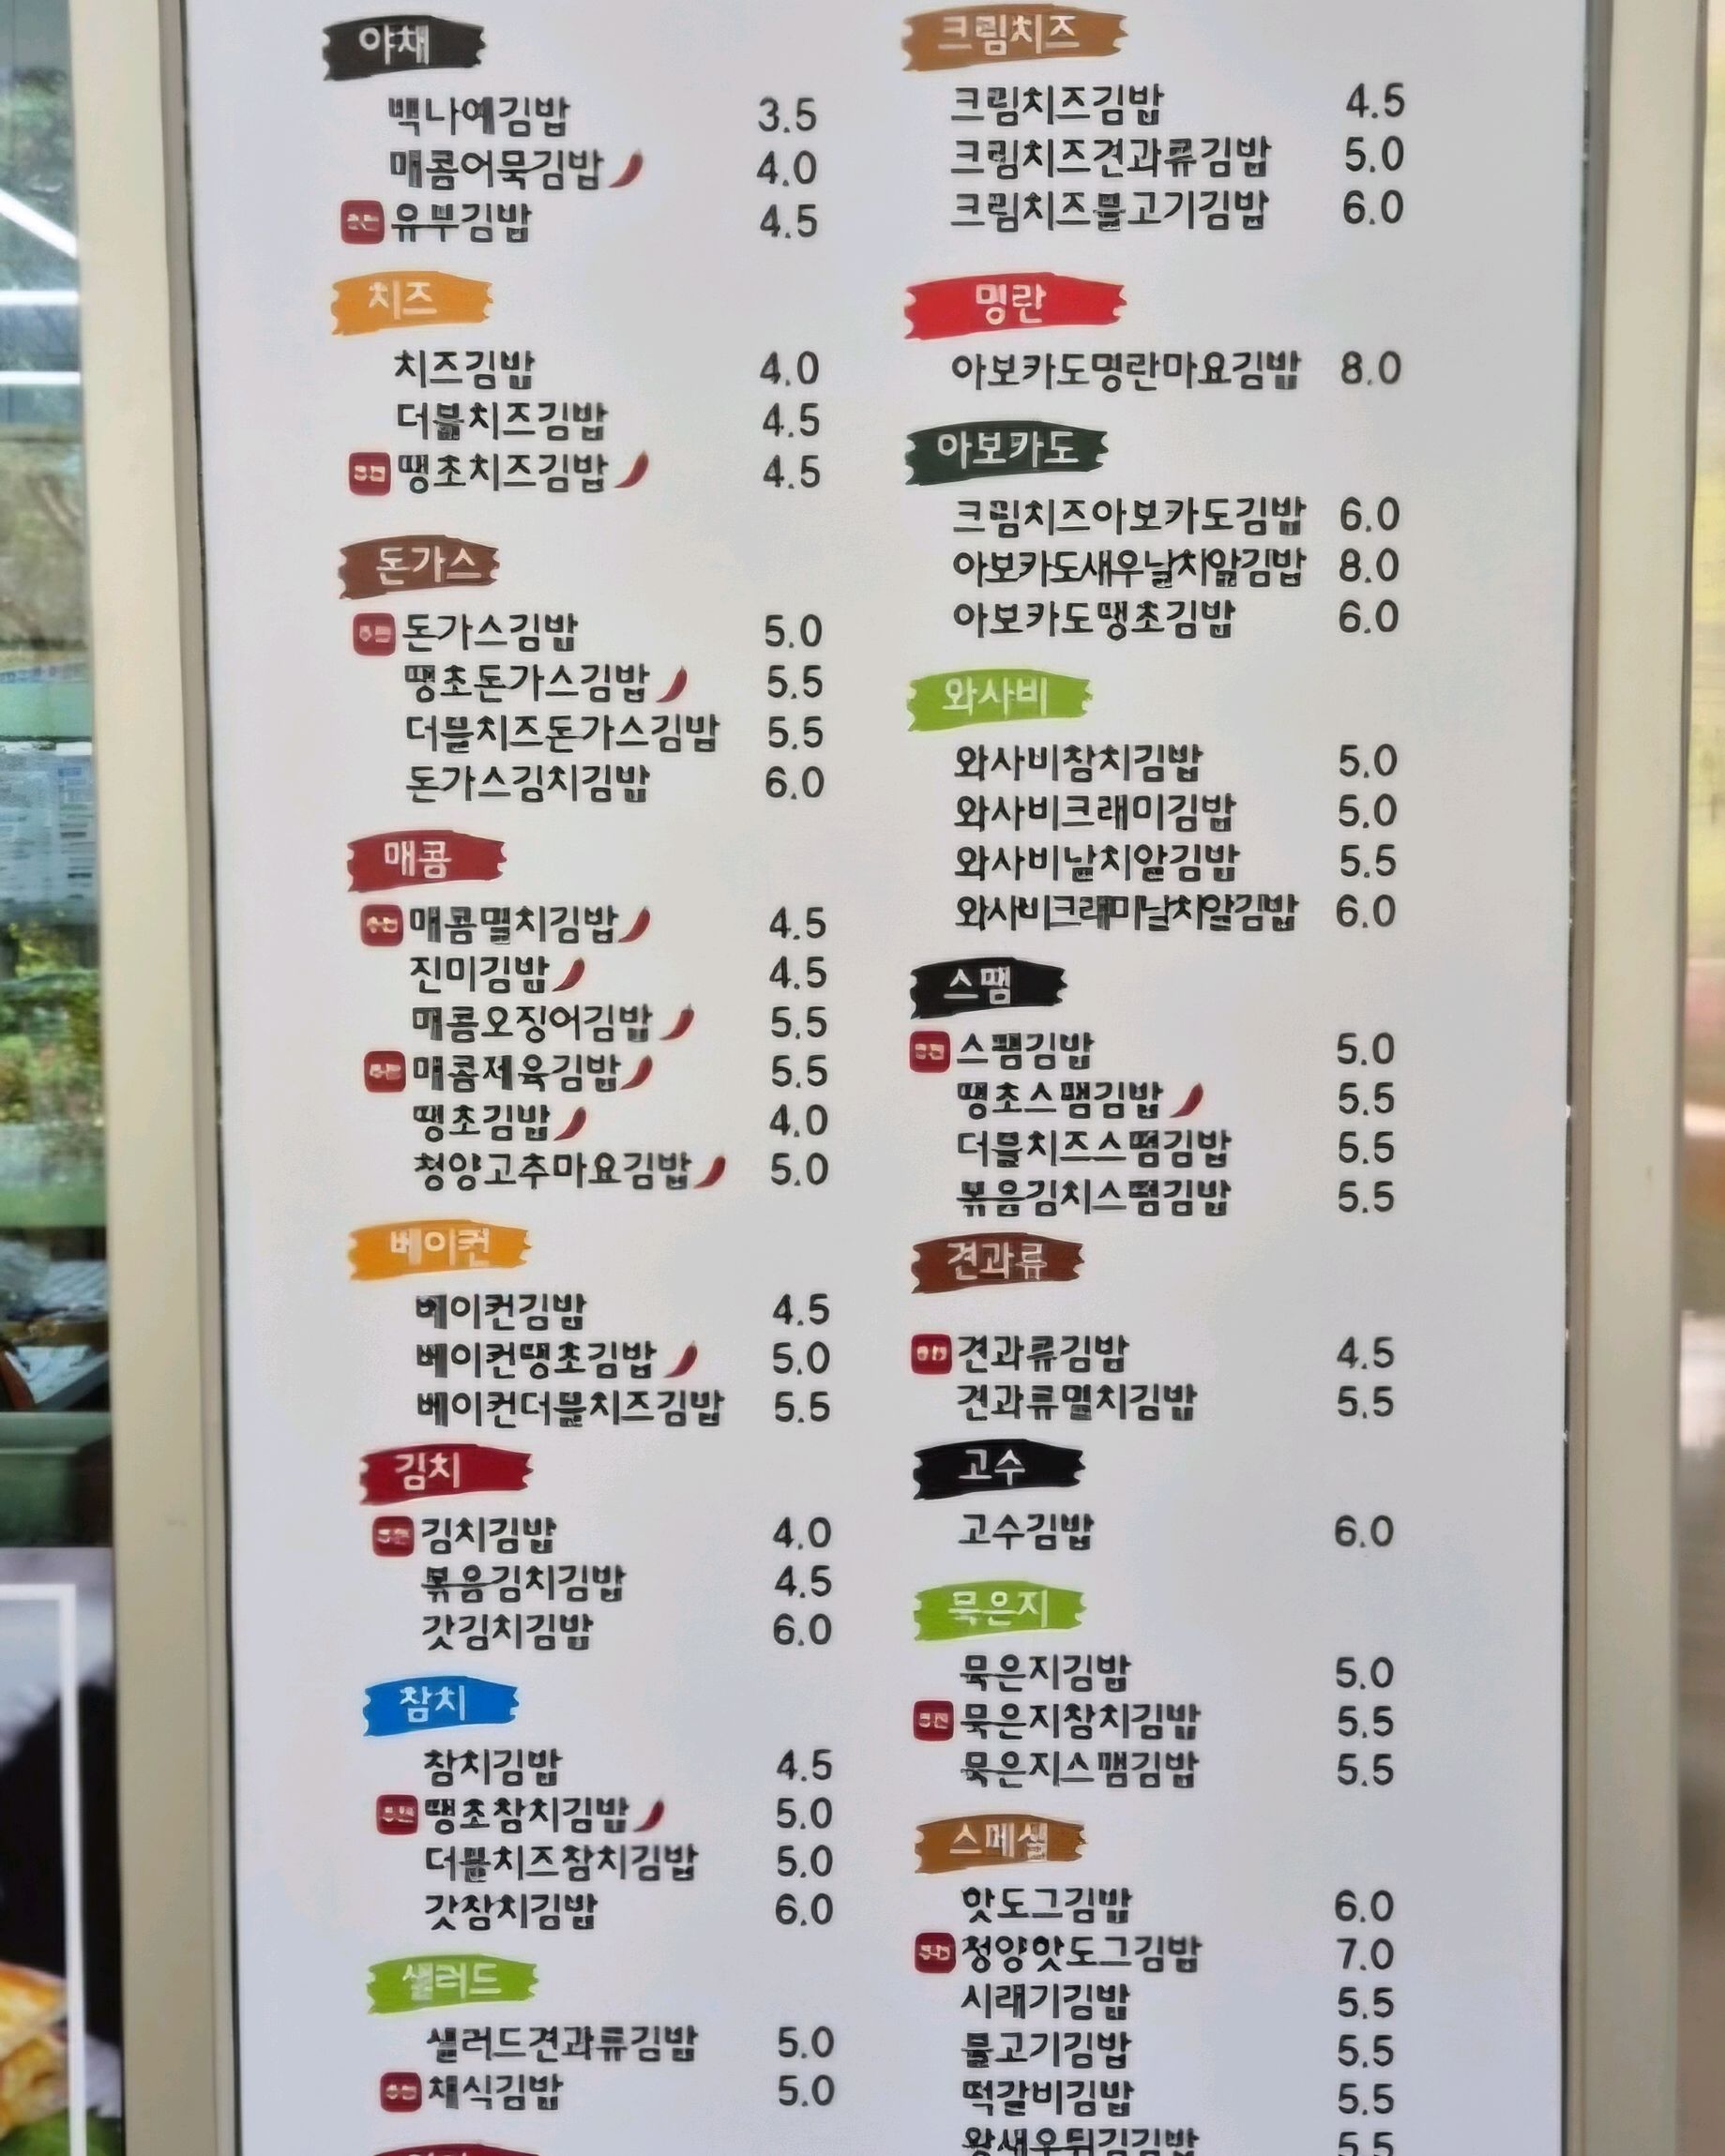 야채
백나예김밥 3.5
매콤어묵김밥 4.0
유부김밥 4.5
치즈
치즈김밥 4.0
더블치즈김밥 4.5
땡초치즈김밥 4.5
돈가스
돈가스김밥 5.0
땡초돈가스김밥 5.5
더블치즈돈가스김밥 5.5
돈가스김치김밥 6.0
매콤
매콤멸치김밥 4.5
진미김밥 4.5
매콤오징어김밥 5.5
매콤제육김밥 5.5
땡초김밥 4.0
청양고추마요김밥 5.0
베이컨
베이컨김밥 4.5
베이컨땡초김밥 5.0
베이컨더블치즈김밥 5.5
김치
김치김밥 4.0
볶음김치김밥 4.5
갓김치김밥 6.0
참치
참치김밥 4.5
땡초참치김밥 5.0
더블치즈참치김밥 5.0
갓참치김밥 6.0
샐러드
샐러드견과류김밥 5.0
채식김밥 5.0
크림치즈
크림치즈김밥 4.5
크림치즈견과류김밥 5.0
크림치즈불고기김밥 6.0
명란
아보카도명란마요김밥 8.0
아보카도
크림치즈아보카도김밥 6.0
아보카도새우날치알김밥 8.0
아보카도땡초김밥 6.0
와사비
와사비참치김밥 5.0
와사비크래미김밥 5.0
와사비날치알김밥 5.5
와사비크래미날치알김밥 6.0
스팸
스팸김밥 5.0
땡초스팸김밥 5.5
더블치즈스팸김밥 5.5
볶음김치스팸김밥 5.5
견과류
견과류김밥 4.5
견과류멸치김밥 5.5
고수
고수김밥 6.0
묵은지
묵은지김밥 5.0
묵은지참치김밥 5.5
묵은지스팸김밥 5.5
스페셜
핫도그김밥 6.0
청양핫도그김밥 7.0
시래기김밥 5.5
불고기김밥 5.5
떡갈비김밥 5.5
왕새우튀김김밥 5.5